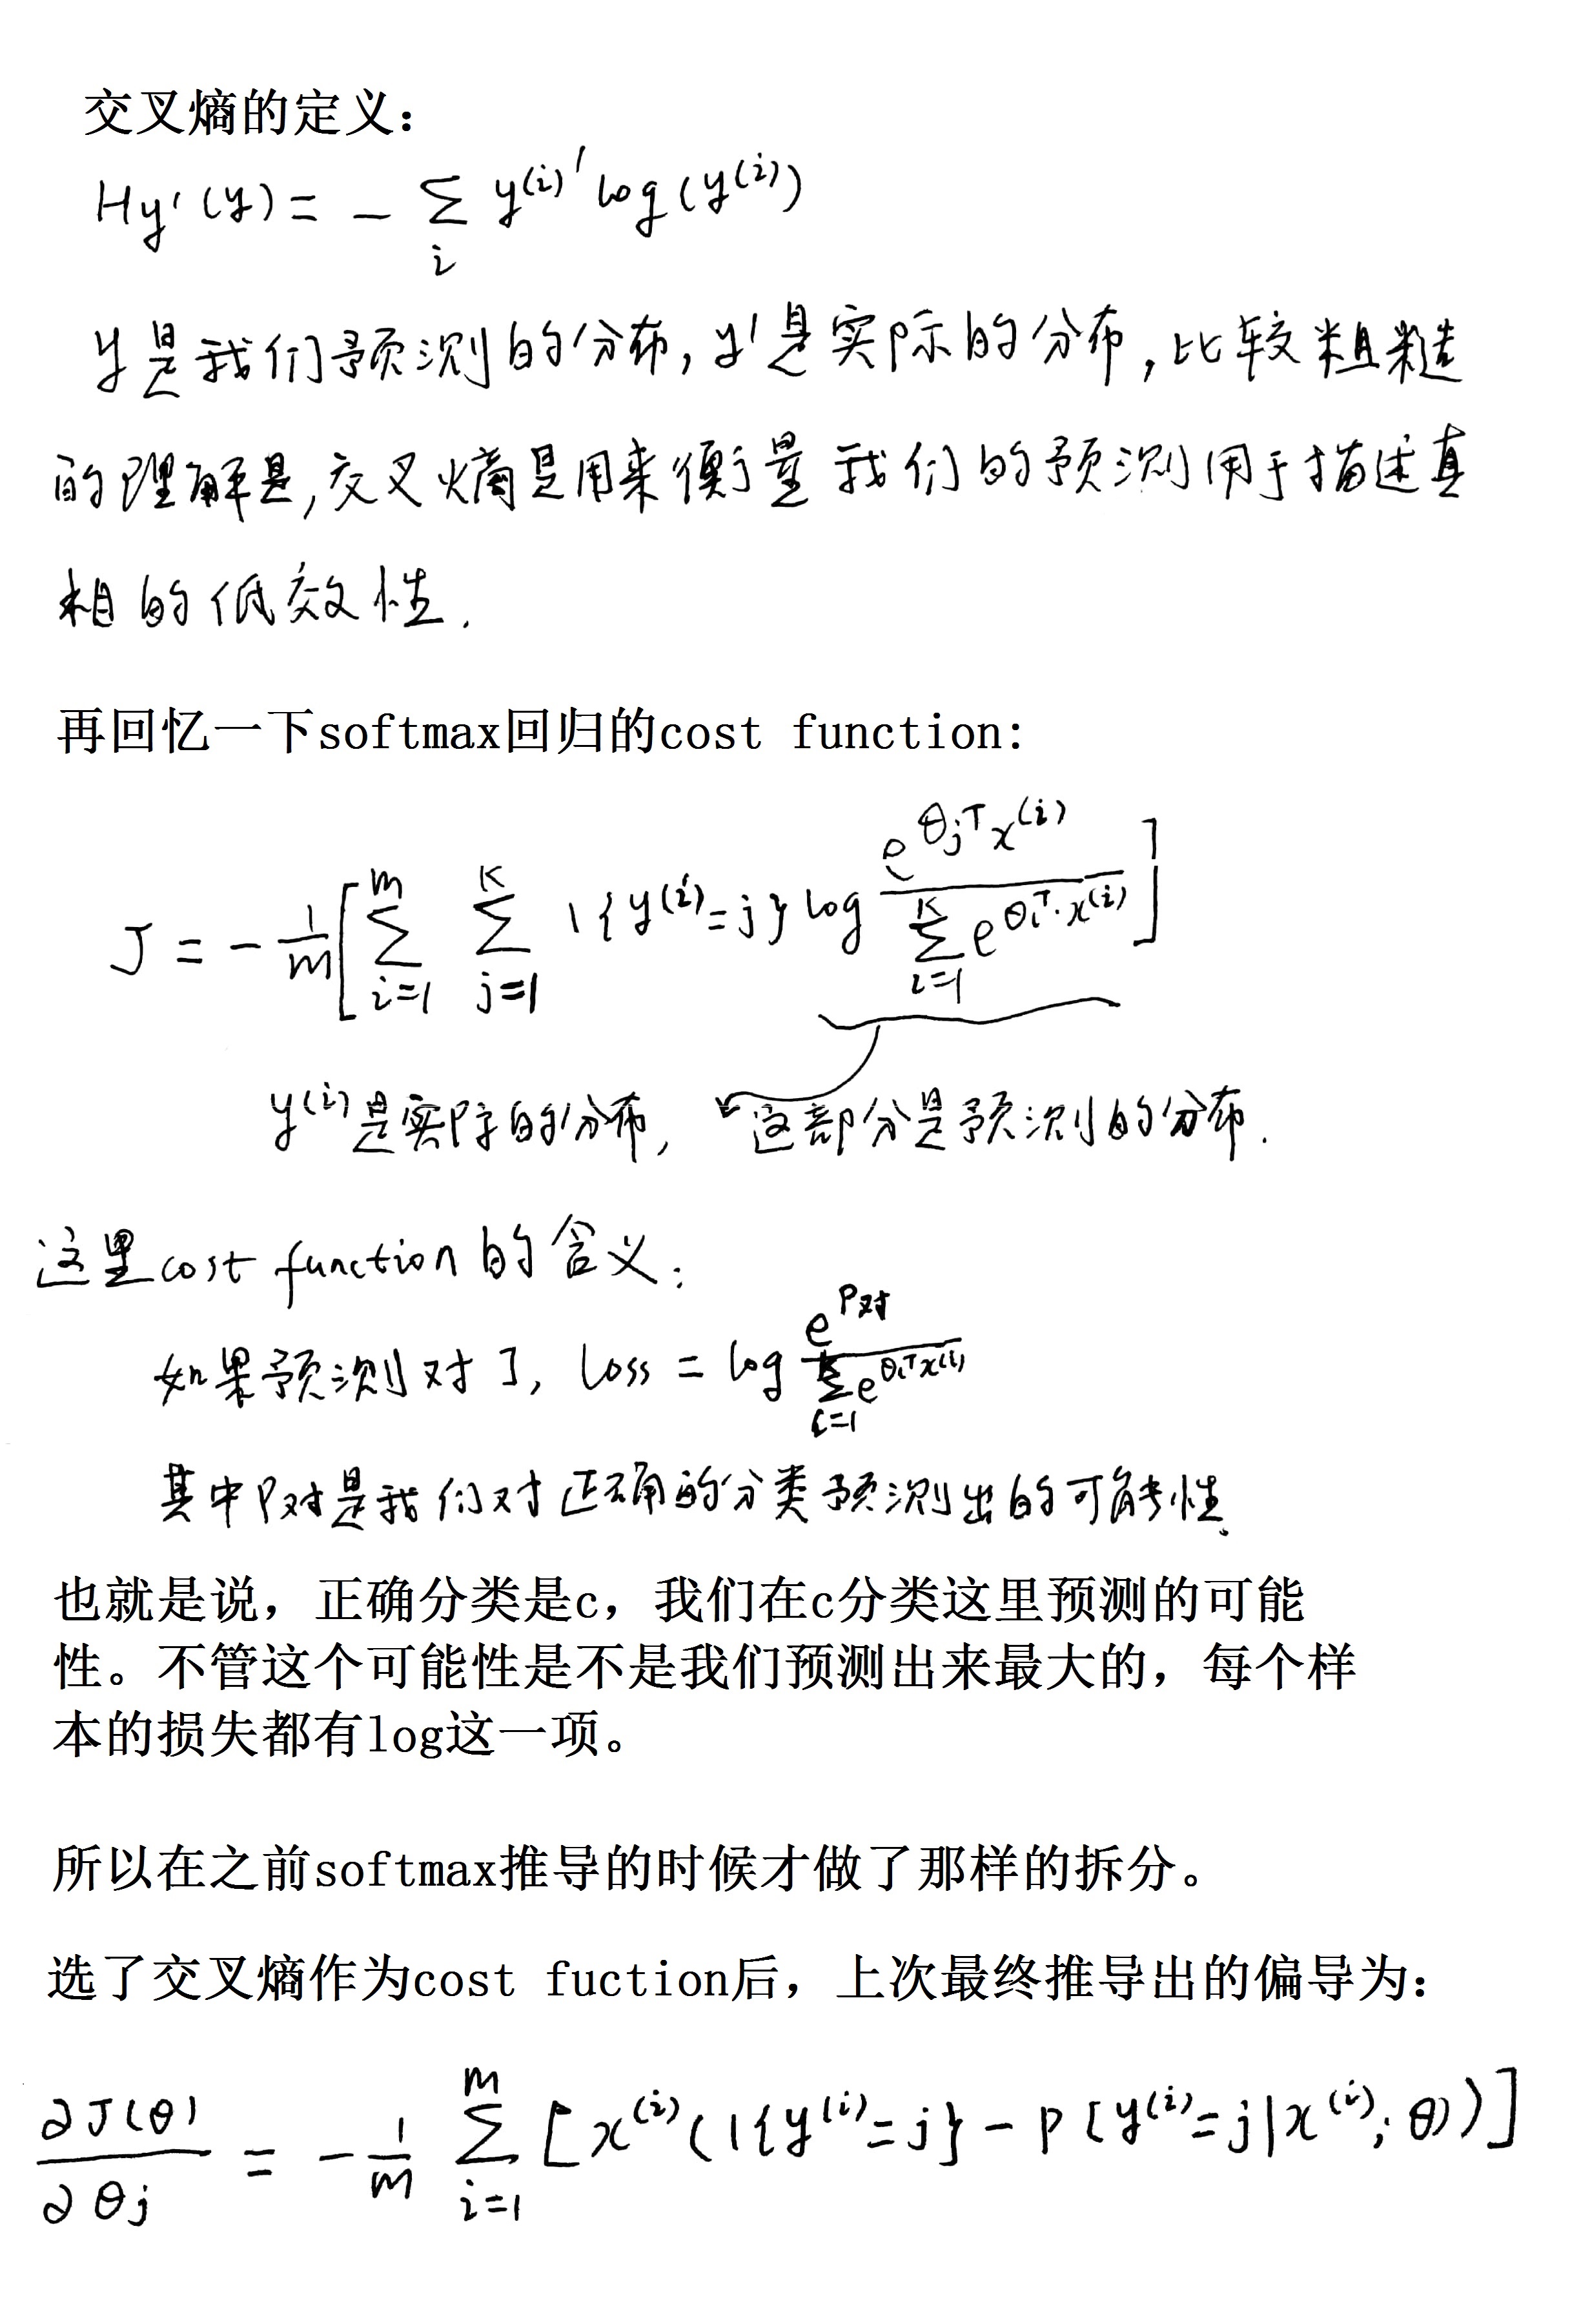 交叉熵的定义：
Hy'(y) = - Σ_i y^(i)' log(y^(i))
y是我们预测的分布，y'是实际的分布，比较粗糙
的理解是，交叉熵是用来衡量我们的预测用于描述真
相的低效性.
再回忆一下softmax回归的cost function:
J = - 1/m [ Σ_{i=1}^{m} Σ_{j=1}^{k} 1{y^(i)=j} log ( e^{θ_j^T x^(i)} / Σ_{i=1}^{k} e^{θ_i^T · x^(i)} ) ]
y^(i)是实际的分布， 这部分是预测的分布.
这里cost function的含义：
如果预测对了，Loss = log ( e^{P对} / Σ_{i=1}^{k} e^{θ_i^T x^(i)} )
其中P对是我们对正确的分类预测出的可能性.
也就是说，正确分类是c，我们在c分类这里预测的可能
性。不管这个可能性是不是我们预测出来最大的，每个样
本的损失都有log这一项。
所以在之前softmax推导的时候才做了那样的拆分。
选了交叉熵作为cost fuction后，上次最终推导出的偏导为：
∂J(θ)/∂θj = - 1/m Σ_{i=1}^{m} [ x^(i) (1{y^(i)=j} - p(y^(i)=j|x^(i); θ)) ]